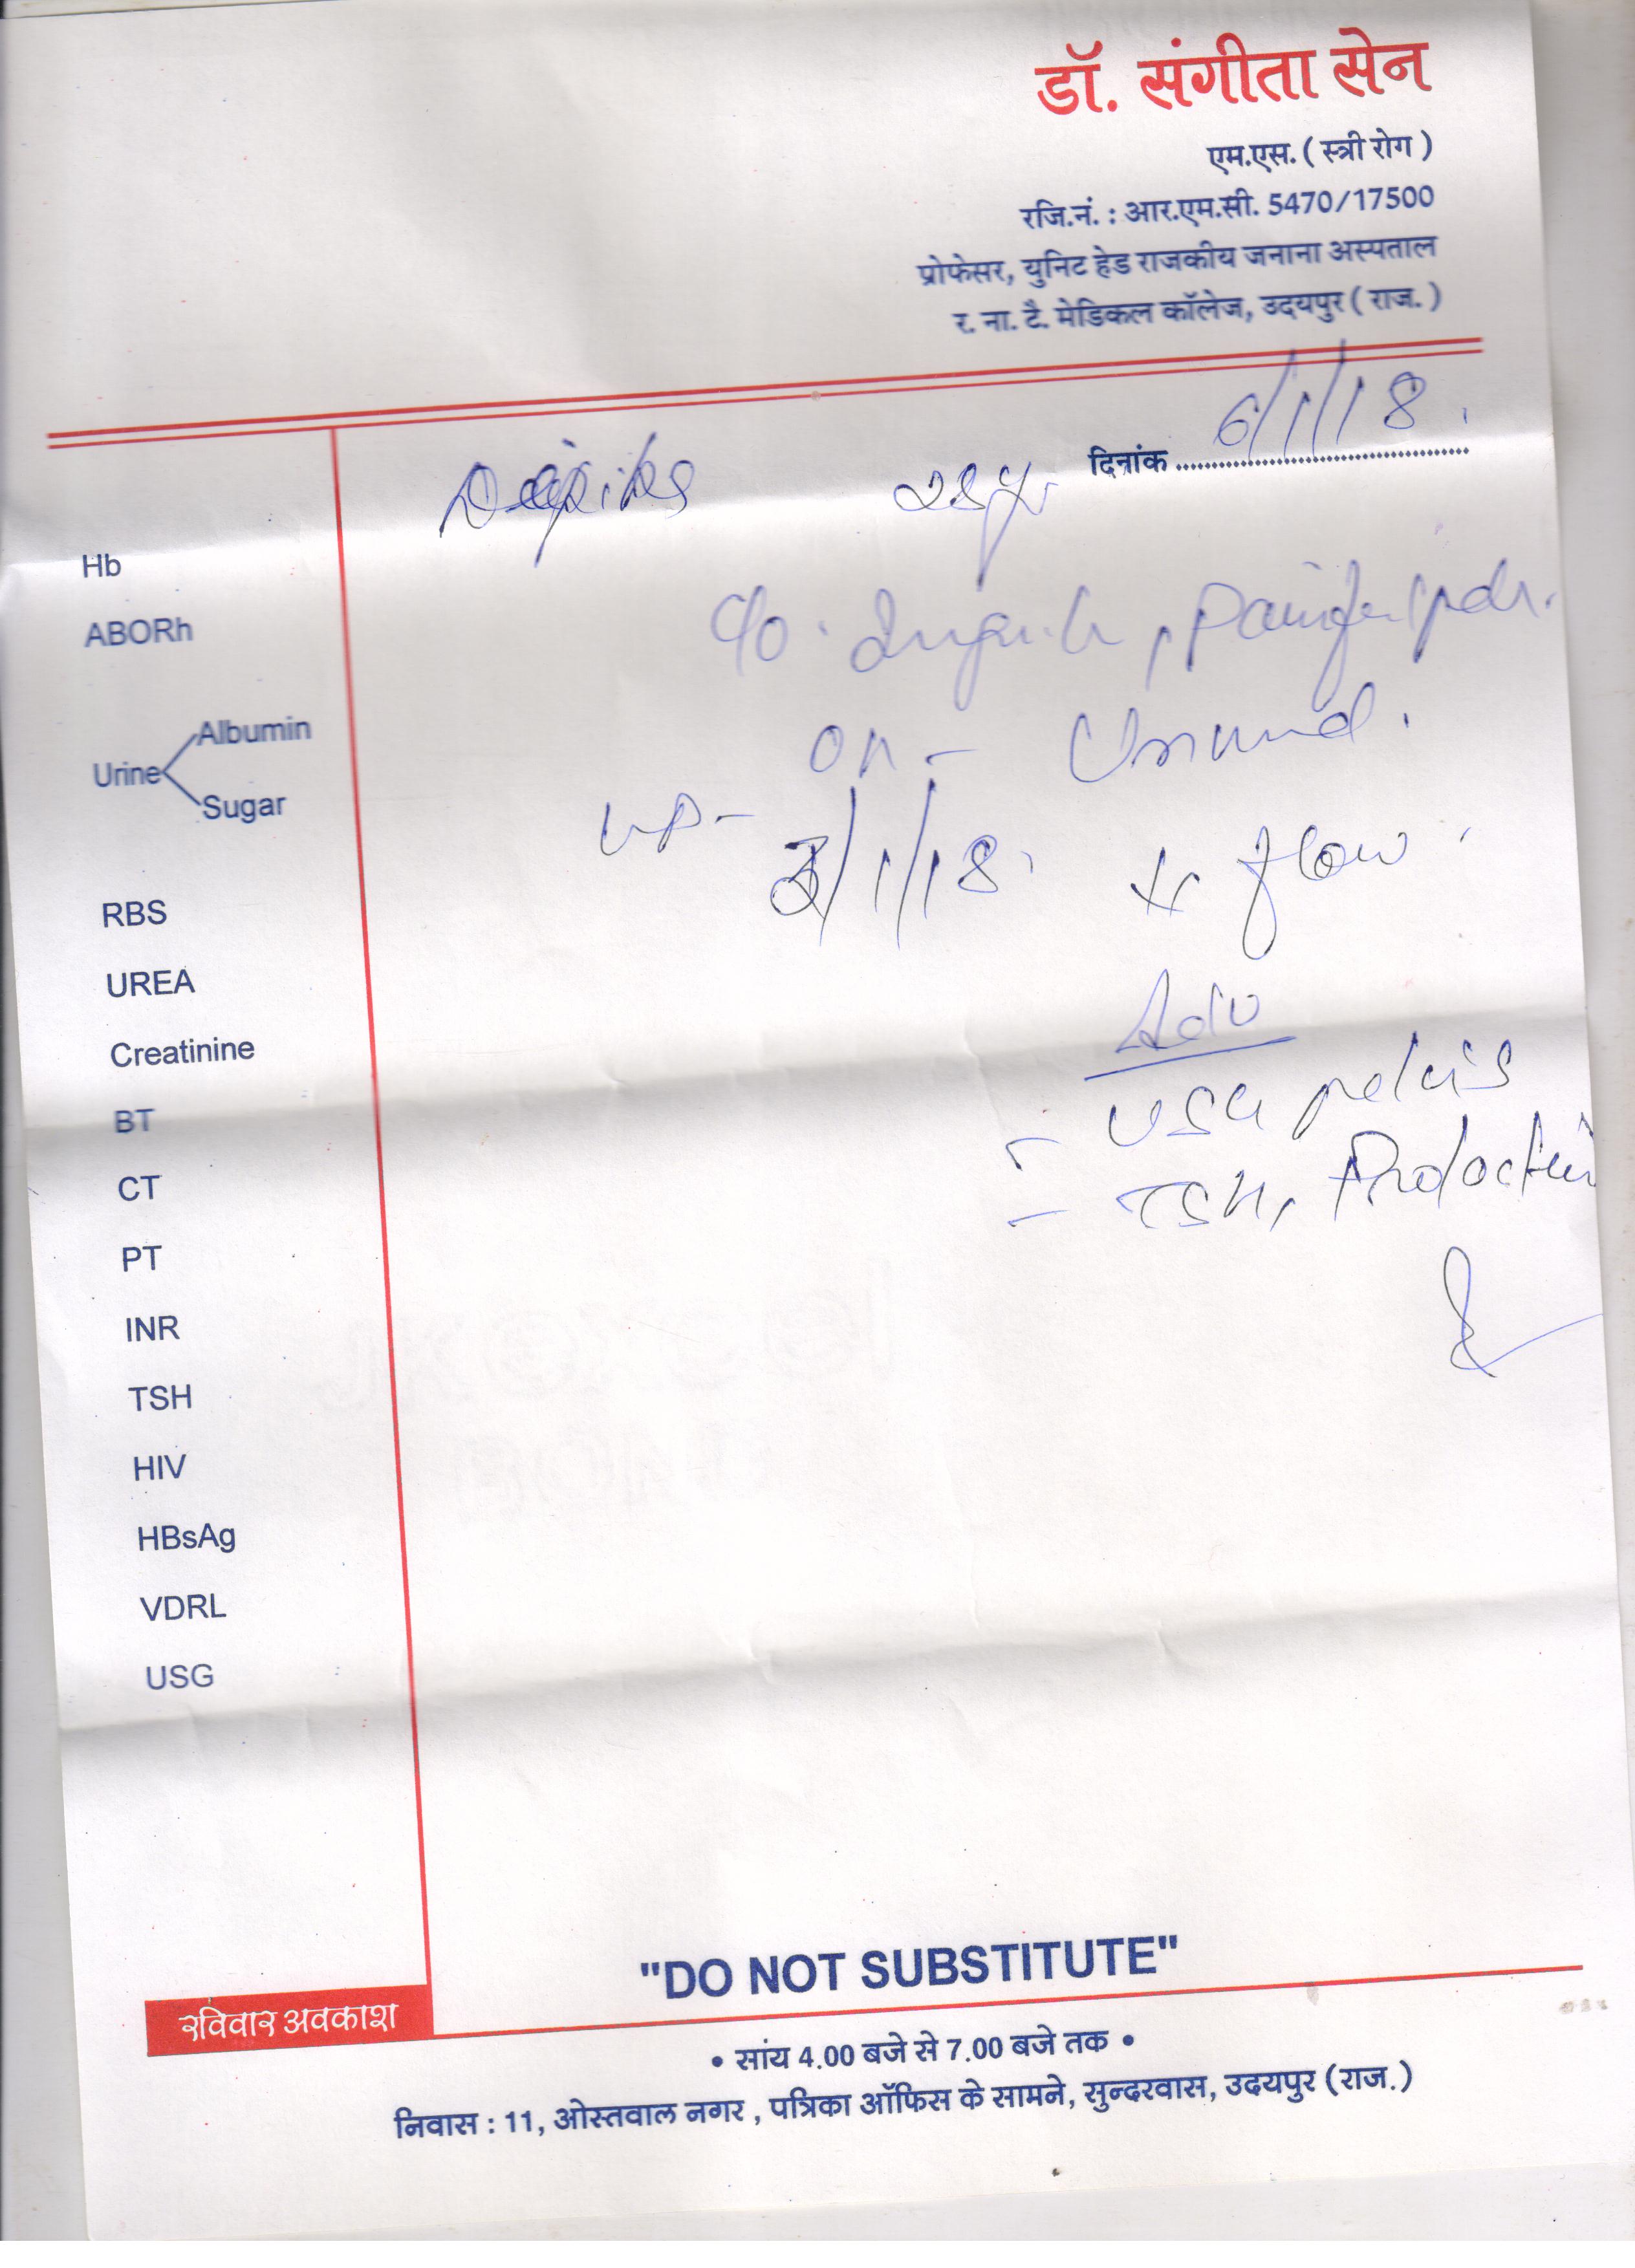 डॉ. संगीता सेन
एम.एस. ( स्त्री रोग )
रजि.नं. : आर.एम.सी. 5470/17500
प्रोफेसर, युनिट हेड राजकीय जनाना अस्पताल
र. ना. टै. मेडिकल कॉलेज, उदयपुर ( राज. )
दिनांक 6/1/18.
C/o.
3/1/18. flow.
Adv
- USG pelvis
- TSH, Prolactin
Hb
ABORh
Urine
Albumin
Sugar
RBS
UREA
Creatinine
BT
CT
PT
INR
TSH
HIV
HBsAg
VDRL
USG
"DO NOT SUBSTITUTE"
रविवार अवकाश
• सांय 4.00 बजे से 7.00 बजे तक •
निवास : 11, ओस्तवाल नगर , पत्रिका ऑफिस के सामने, सुन्दरवास, उदयपुर (राज.)